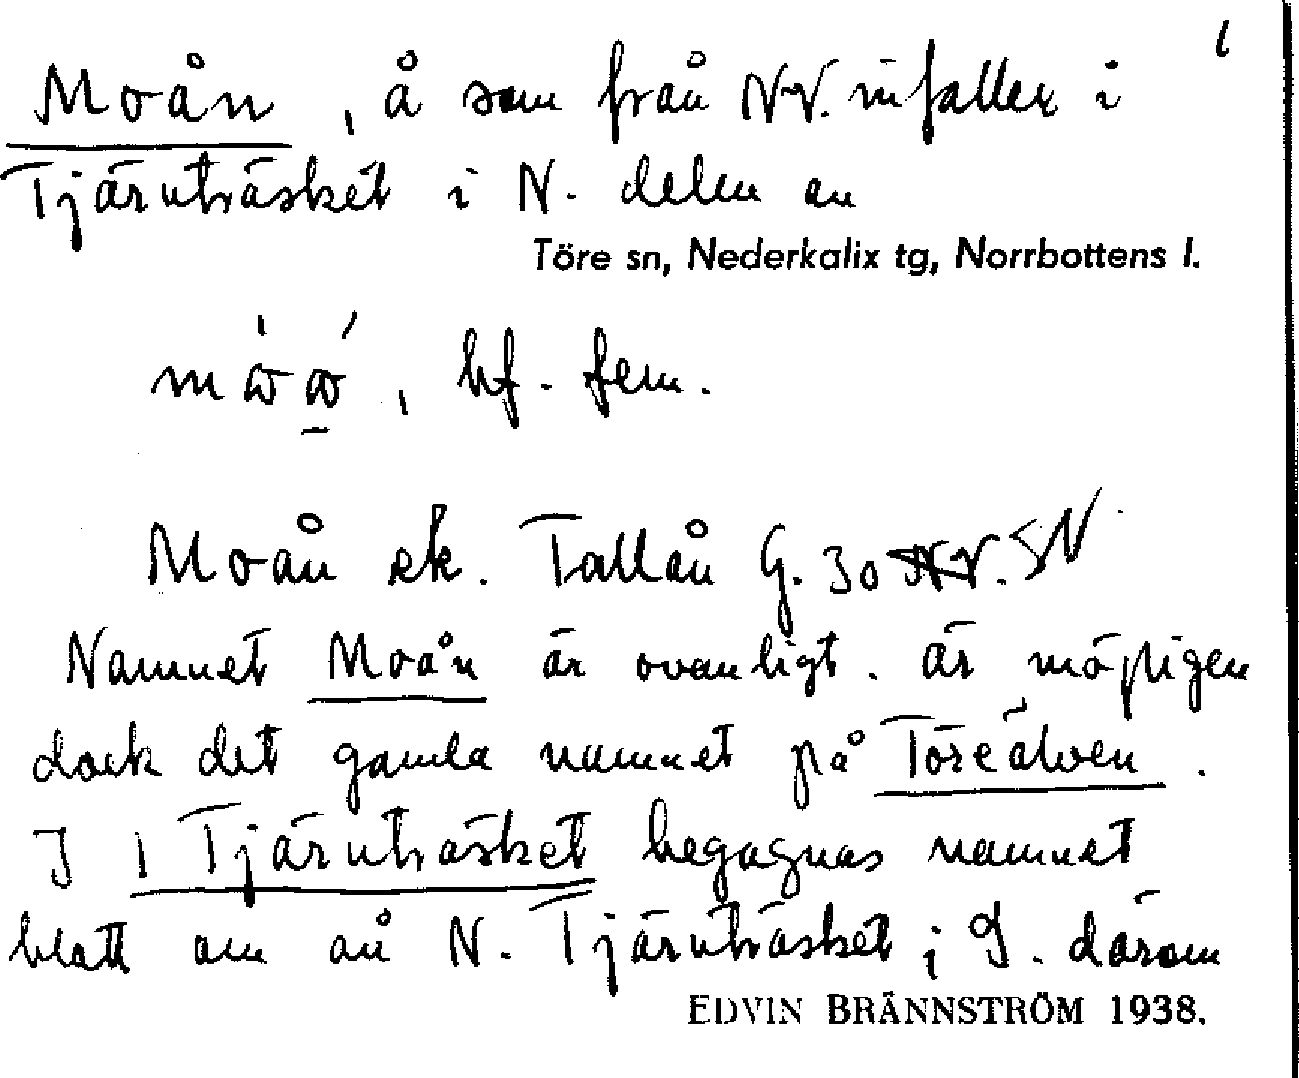 1
Moån, å som från NV. infaller i
Tjärnträsket i N. delen av
Töre sn, Nederkalix tg, Norrbottens l.
, bf. fem.
Moån ek. Tallån G. 30 SN
Namnet Moån är ovanligt. är möjligen
dock det gamla namnet på Töreälven.
I Tjärnträsket begagnas namnet
blott om ån N. Tjärnträsket; S. därom
EDVIN BRÄNNSTRÖM 1938.